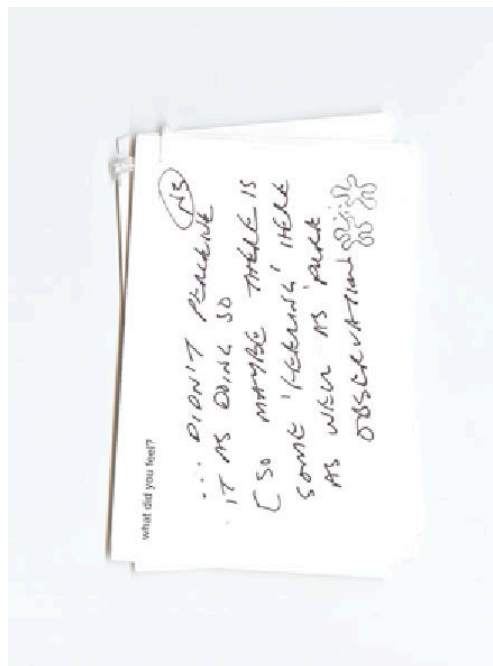 what did you feel?
NS
... DIDN'T PERCEIVE
IT AS DOING SO
[SO MAYBE THERE IS
SOME 'FEELING' HERE
AS WELL AS PURE
OBSERVATION